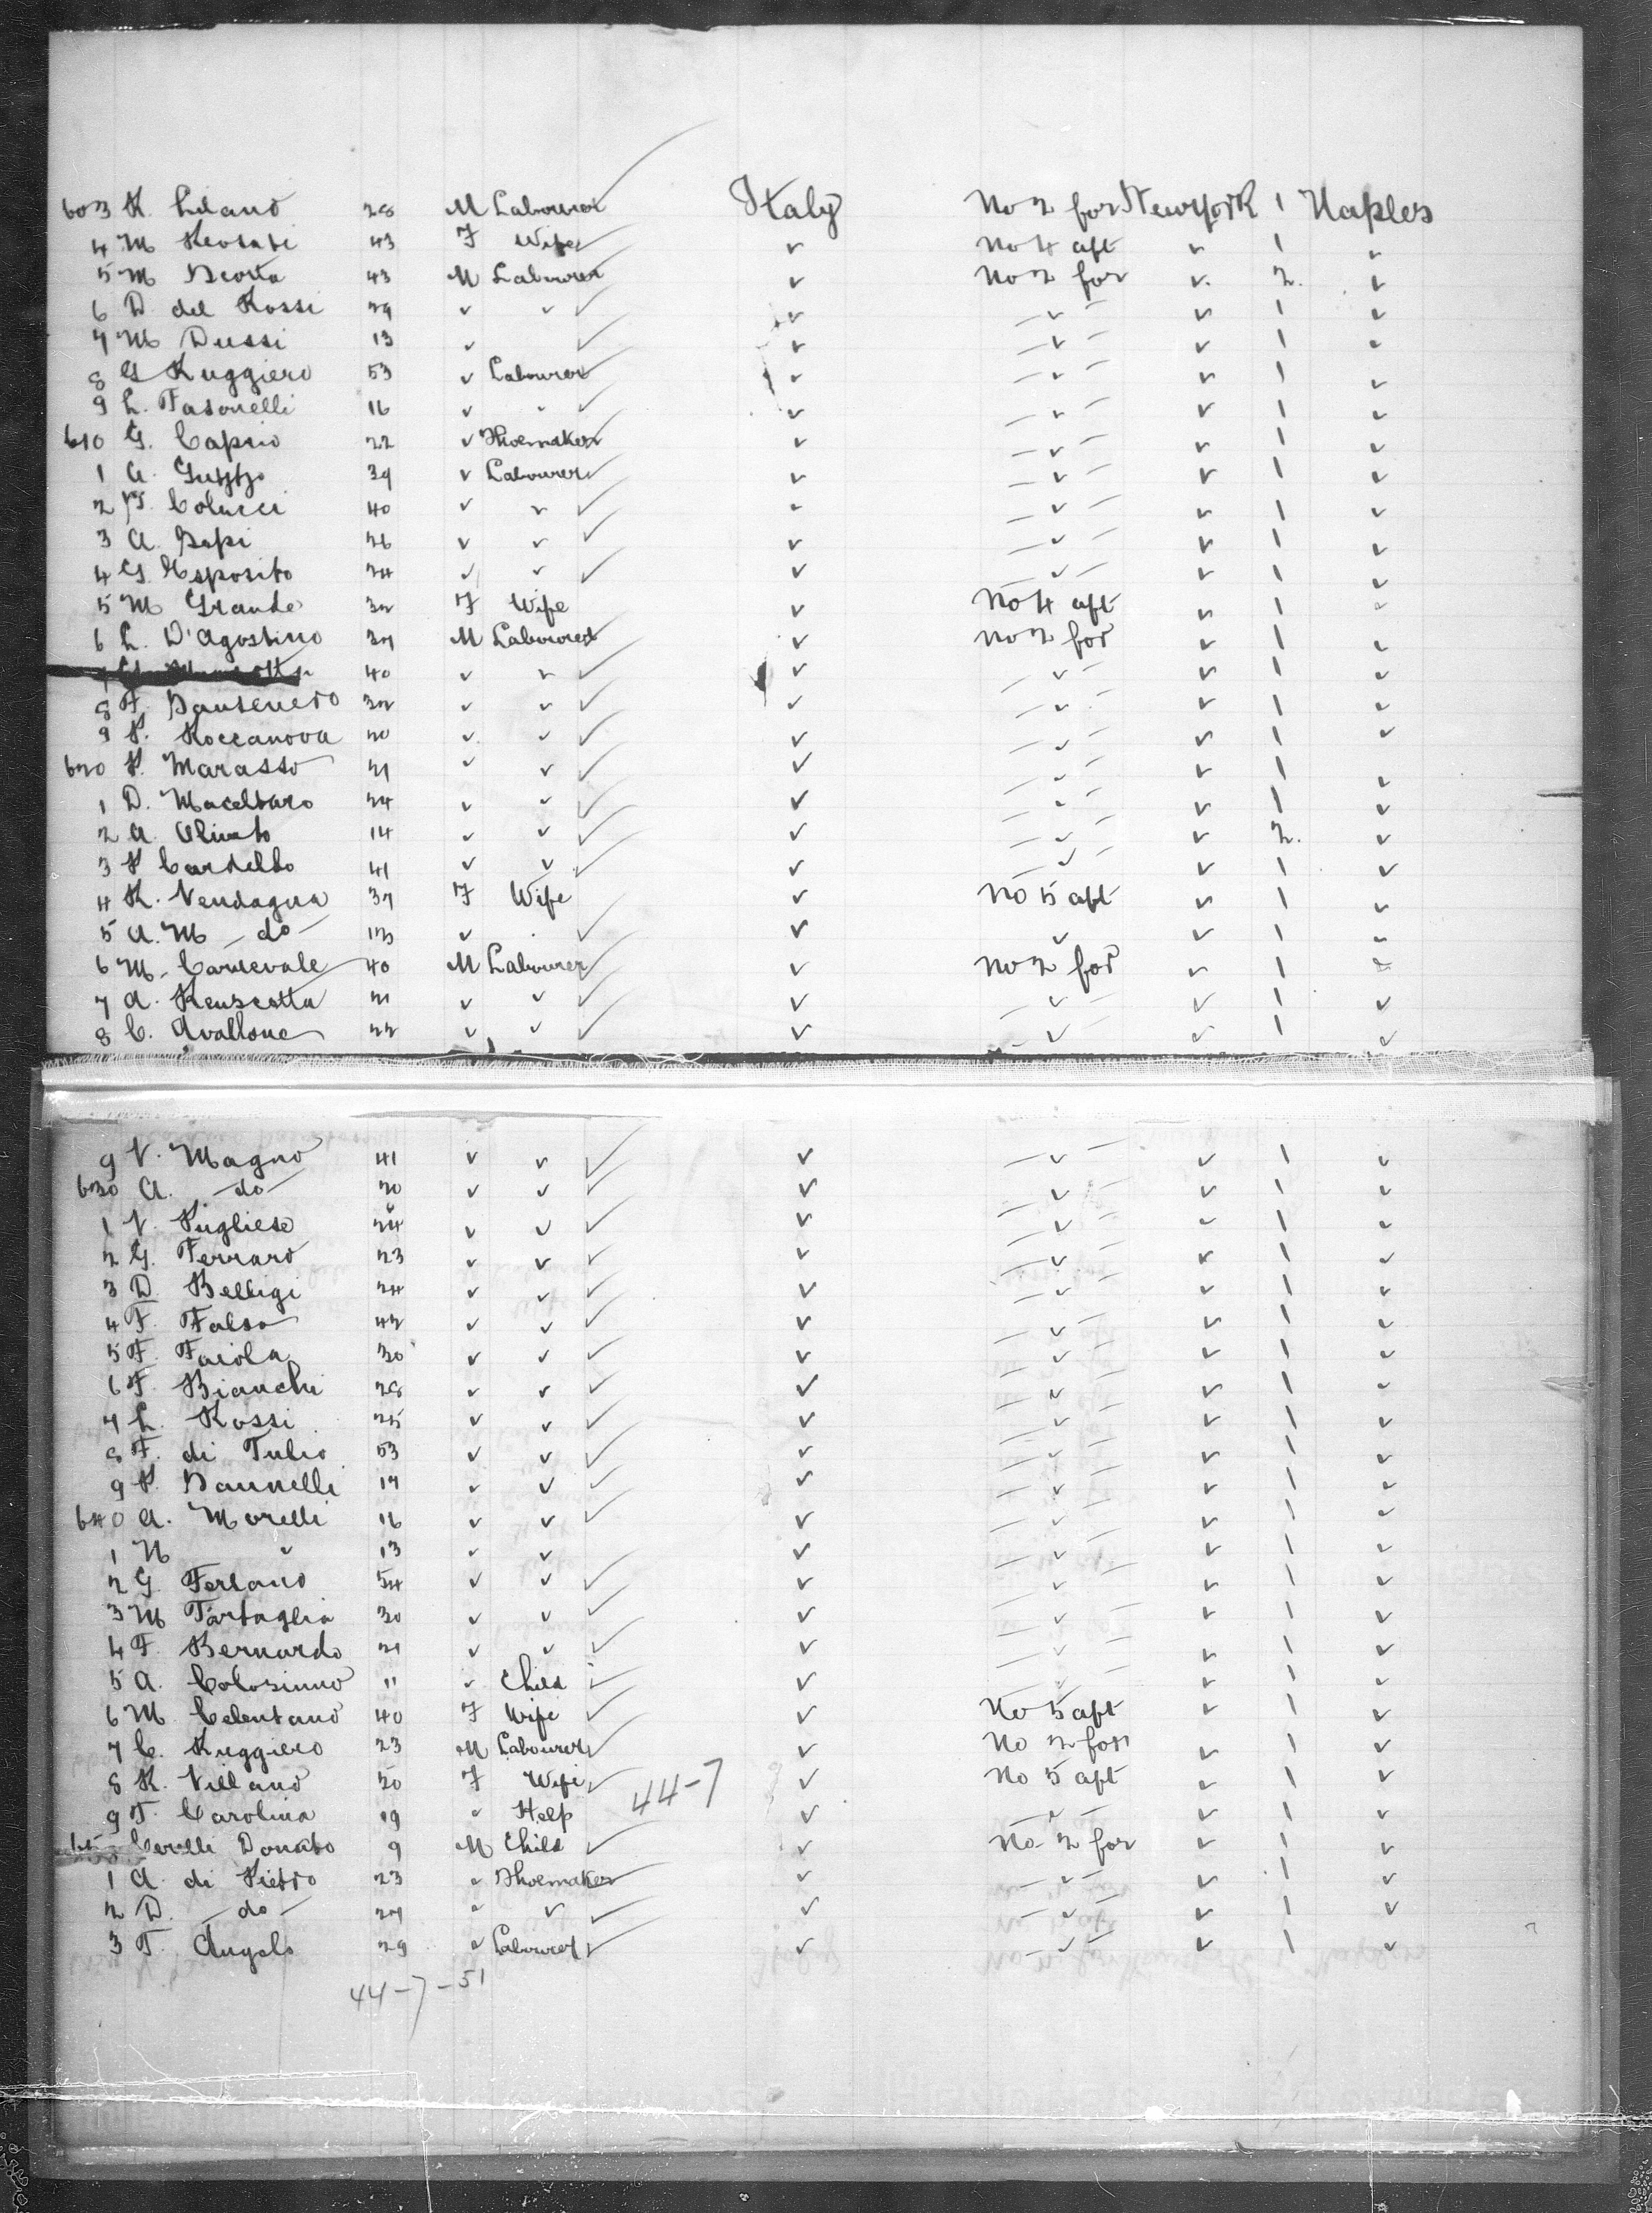 603 R. Lilano 28 M Labourer Italy No 2 for New York 1 Naples
4 M 43 F Wife ✓ No 4 aft ✓ 1 ✓
5 M 43 M Labourer ✓ No 2 for ✓ 2. ✓
6 D. del Rossi 29 ✓ ✓ ✓ — ✓ — ✓ 1 ✓
7 M Dussi 13 ✓ ✓ — ✓ — ✓ 1 ✓
8 G Ruggiero 53 ✓ Labourer ✓ — ✓ — ✓ 1 ✓
9 L. Fasonelli 16 ✓ ✓ ✓ — ✓ — ✓ 1 ✓
610 G. Caprio 22 ✓ Shoemaker ✓ — ✓ — ✓ 1 ✓
1 A. Guzzo 39 ✓ Labourer ✓ — ✓ — ✓ 1 ✓
2 P. Colucci 40 ✓ ✓ ✓ — ✓ — ✓ 1 ✓
3 A. 26 ✓ ✓ ✓ — ✓ — ✓ 1 ✓
4 G. Esposito 24 ✓ ✓ ✓ — ✓ — ✓ 1 ✓
5 M Grande 32 F Wife ✓ No 4 aft ✓ 1 ✓
6 L. D'Agostino 27 M Labourer ✓ No 2 for ✓ 1 ✓
40 ✓ ✓ ✓ — ✓ — ✓ 1 ✓
8 F. Sansenero 32 ✓ ✓ ✓ — ✓ — ✓ 1 ✓
9 P. Roccanova 20 ✓ ✓ ✓ — ✓ — ✓ 1 ✓
620 P. Marasso 21 ✓ ✓ ✓ — ✓ — ✓ 1 ✓
1 D. Macellaro 24 ✓ ✓ ✓ — ✓ — ✓ 1 ✓
2 A. Oliveto 14 ✓ ✓ ✓ — ✓ — ✓ 2. ✓
3 P Cardello 41 ✓ ✓ ✓ — ✓ — ✓ 1 ✓
4 R. Vendagna 37 F Wife ✓ No 5 aft ✓ 1 ✓
5 A. M — do — 13 ✓ ✓ ✓ ✓ 1 ✓
6 M. Carnevale 40 M Labourer ✓ No 2 for ✓ 1 ✓
7 A. 21 ✓ ✓ ✓ — ✓ — ✓ 1 ✓
8 C. Avallone 22 ✓ ✓ ✓ — ✓ — ✓ 1 ✓
9 V. Magno 41 ✓ ✓ ✓ — ✓ — ✓ 1 ✓
630 A. — do — 20 ✓ ✓ ✓ — ✓ — ✓ 1 ✓
1 V. Pugliese 24 ✓ ✓ ✓ — ✓ — ✓ 1 ✓
2 G. Ferraro 23 ✓ ✓ ✓ — ✓ — ✓ 1 ✓
3 D. Belligi 24 ✓ ✓ ✓ — ✓ — ✓ 1 ✓
4 F. Falso 42 ✓ ✓ ✓ — ✓ — ✓ 1 ✓
5 F. Faiola 30 ✓ ✓ ✓ — ✓ — ✓ 1 ✓
6 F. Bianchi 28 ✓ ✓ ✓ — ✓ — ✓ 1 ✓
7 L. Rossi 25 ✓ ✓ ✓ — ✓ — ✓ 1 ✓
8 F. di Tulio 53 ✓ ✓ ✓ — ✓ — ✓ 1 ✓
9 P. Sannelli 17 ✓ ✓ ✓ — ✓ — ✓ 1 ✓
640 A. Morelli 16 ✓ ✓ ✓ — ✓ — ✓ 1 ✓
1 N ✓ 13 ✓ ✓ ✓ — ✓ — ✓ 1 ✓
2 G. Ferlano 54 ✓ ✓ ✓ — ✓ — ✓ 1 ✓
3 M Tartaglia 30 ✓ ✓ ✓ — ✓ — ✓ 1 ✓
4 F. Bernardo 21 ✓ ✓ ✓ — ✓ — ✓ 1 ✓
5 A. Colosimno 11 ✓ Child ✓ — ✓ — ✓ 1 ✓
6 M Celentano 40 F Wife ✓ No 5 aft ✓ 1 ✓
7 C. Ruggiero 23 M Labourer ✓ No 2 for ✓ 1 ✓
8 R. Villano 50 F Wife 44-7 ✓ No 5 aft ✓ 1 ✓
9 T. Carolina 19 ✓ Help ✓ — ✓ — ✓ 1 ✓
Cerelli Donato 9 M Child ✓ No 2 for ✓ 1 ✓
1 A. di Pietro 23 ✓ Shoemaker ✓ — ✓ — ✓ 1 ✓
2 D. — do — 27 ✓ ✓ ✓ — ✓ — ✓ 1 ✓
3 T. Angelo 29 ✓ Labourer ✓ — ✓ — ✓ 1 ✓
44-7-51